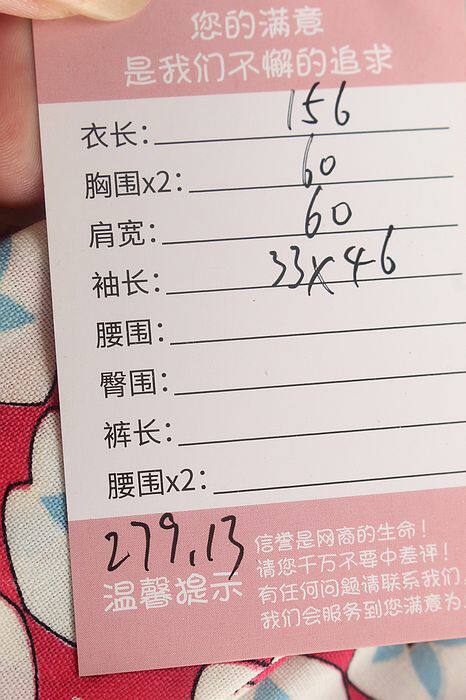 您的满意
是我们不懈的追求
衣长: 156
胸围x2: 60
肩宽: 60
袖长: 33x46
腰围:
臀围:
裤长:
腰围x2:
279.13
温馨提示
信誉是网商的生命!
请您千万不要中差评!
有任何问题请联系我们
我们会服务到您满意为